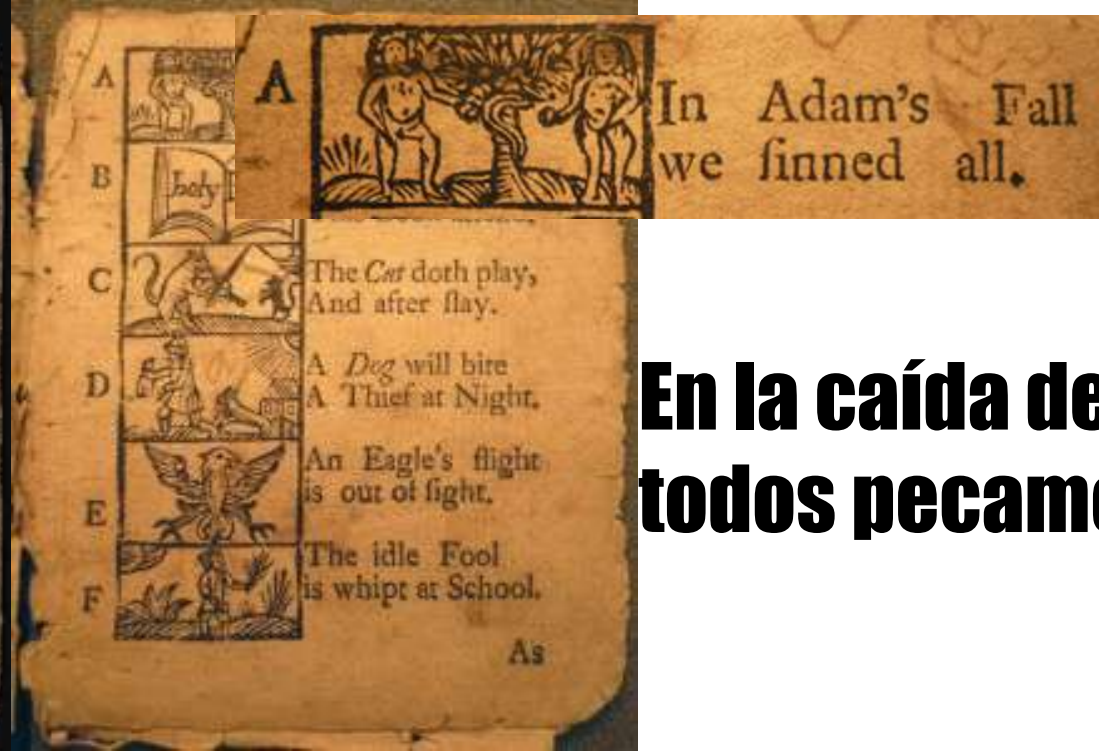 A
In Adam's Fall
we ſinned all.
A
B
holy
C
The Cat doth play,
And after ſlay.
D
A Dog will bite
A Thief at Night.
E
An Eagle's flight
is out of ſight.
F
The idle Fool
is whipt at School.
As
En la caída de
todos pecamo